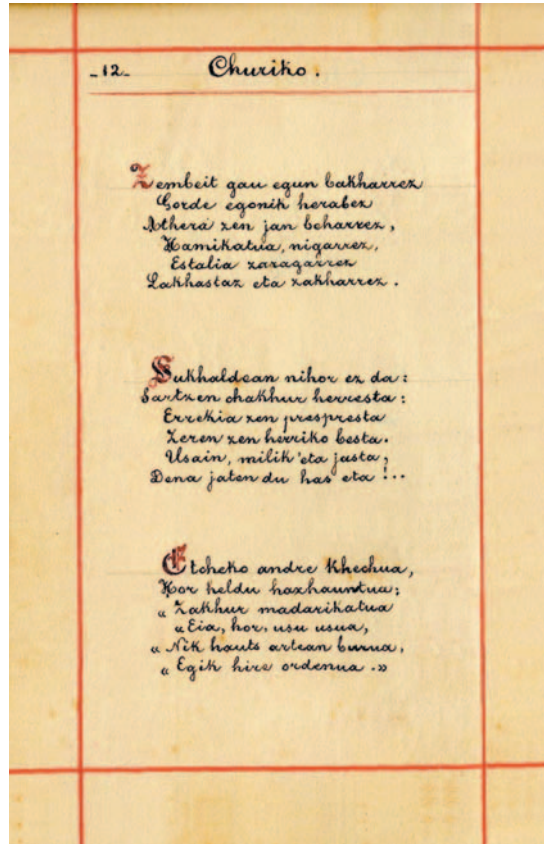 -12-
Churiko.
Zembeit gau egun bakharrez
Gorde egonik herabez
Athera zen jan beharrez,
Hamikatua, nigarrez,
Estalia zaragarrez
Lakhastaz eta zakharrez.
Sukhaldean nihor ez da:
Sartzen chakhur herresta:
Errekia zen prespresta
Zeren zen herriko besta.
Usain, milik 'eta jasta,
Dena jaten du has' eta !..
Etcheko andre khechua,
Hor heldu haxhauntua;
« Zakhur madarikatua
« Eia, hor, usu usua,
« Nik hauts artean burua,
« Egik hire ordenua .»